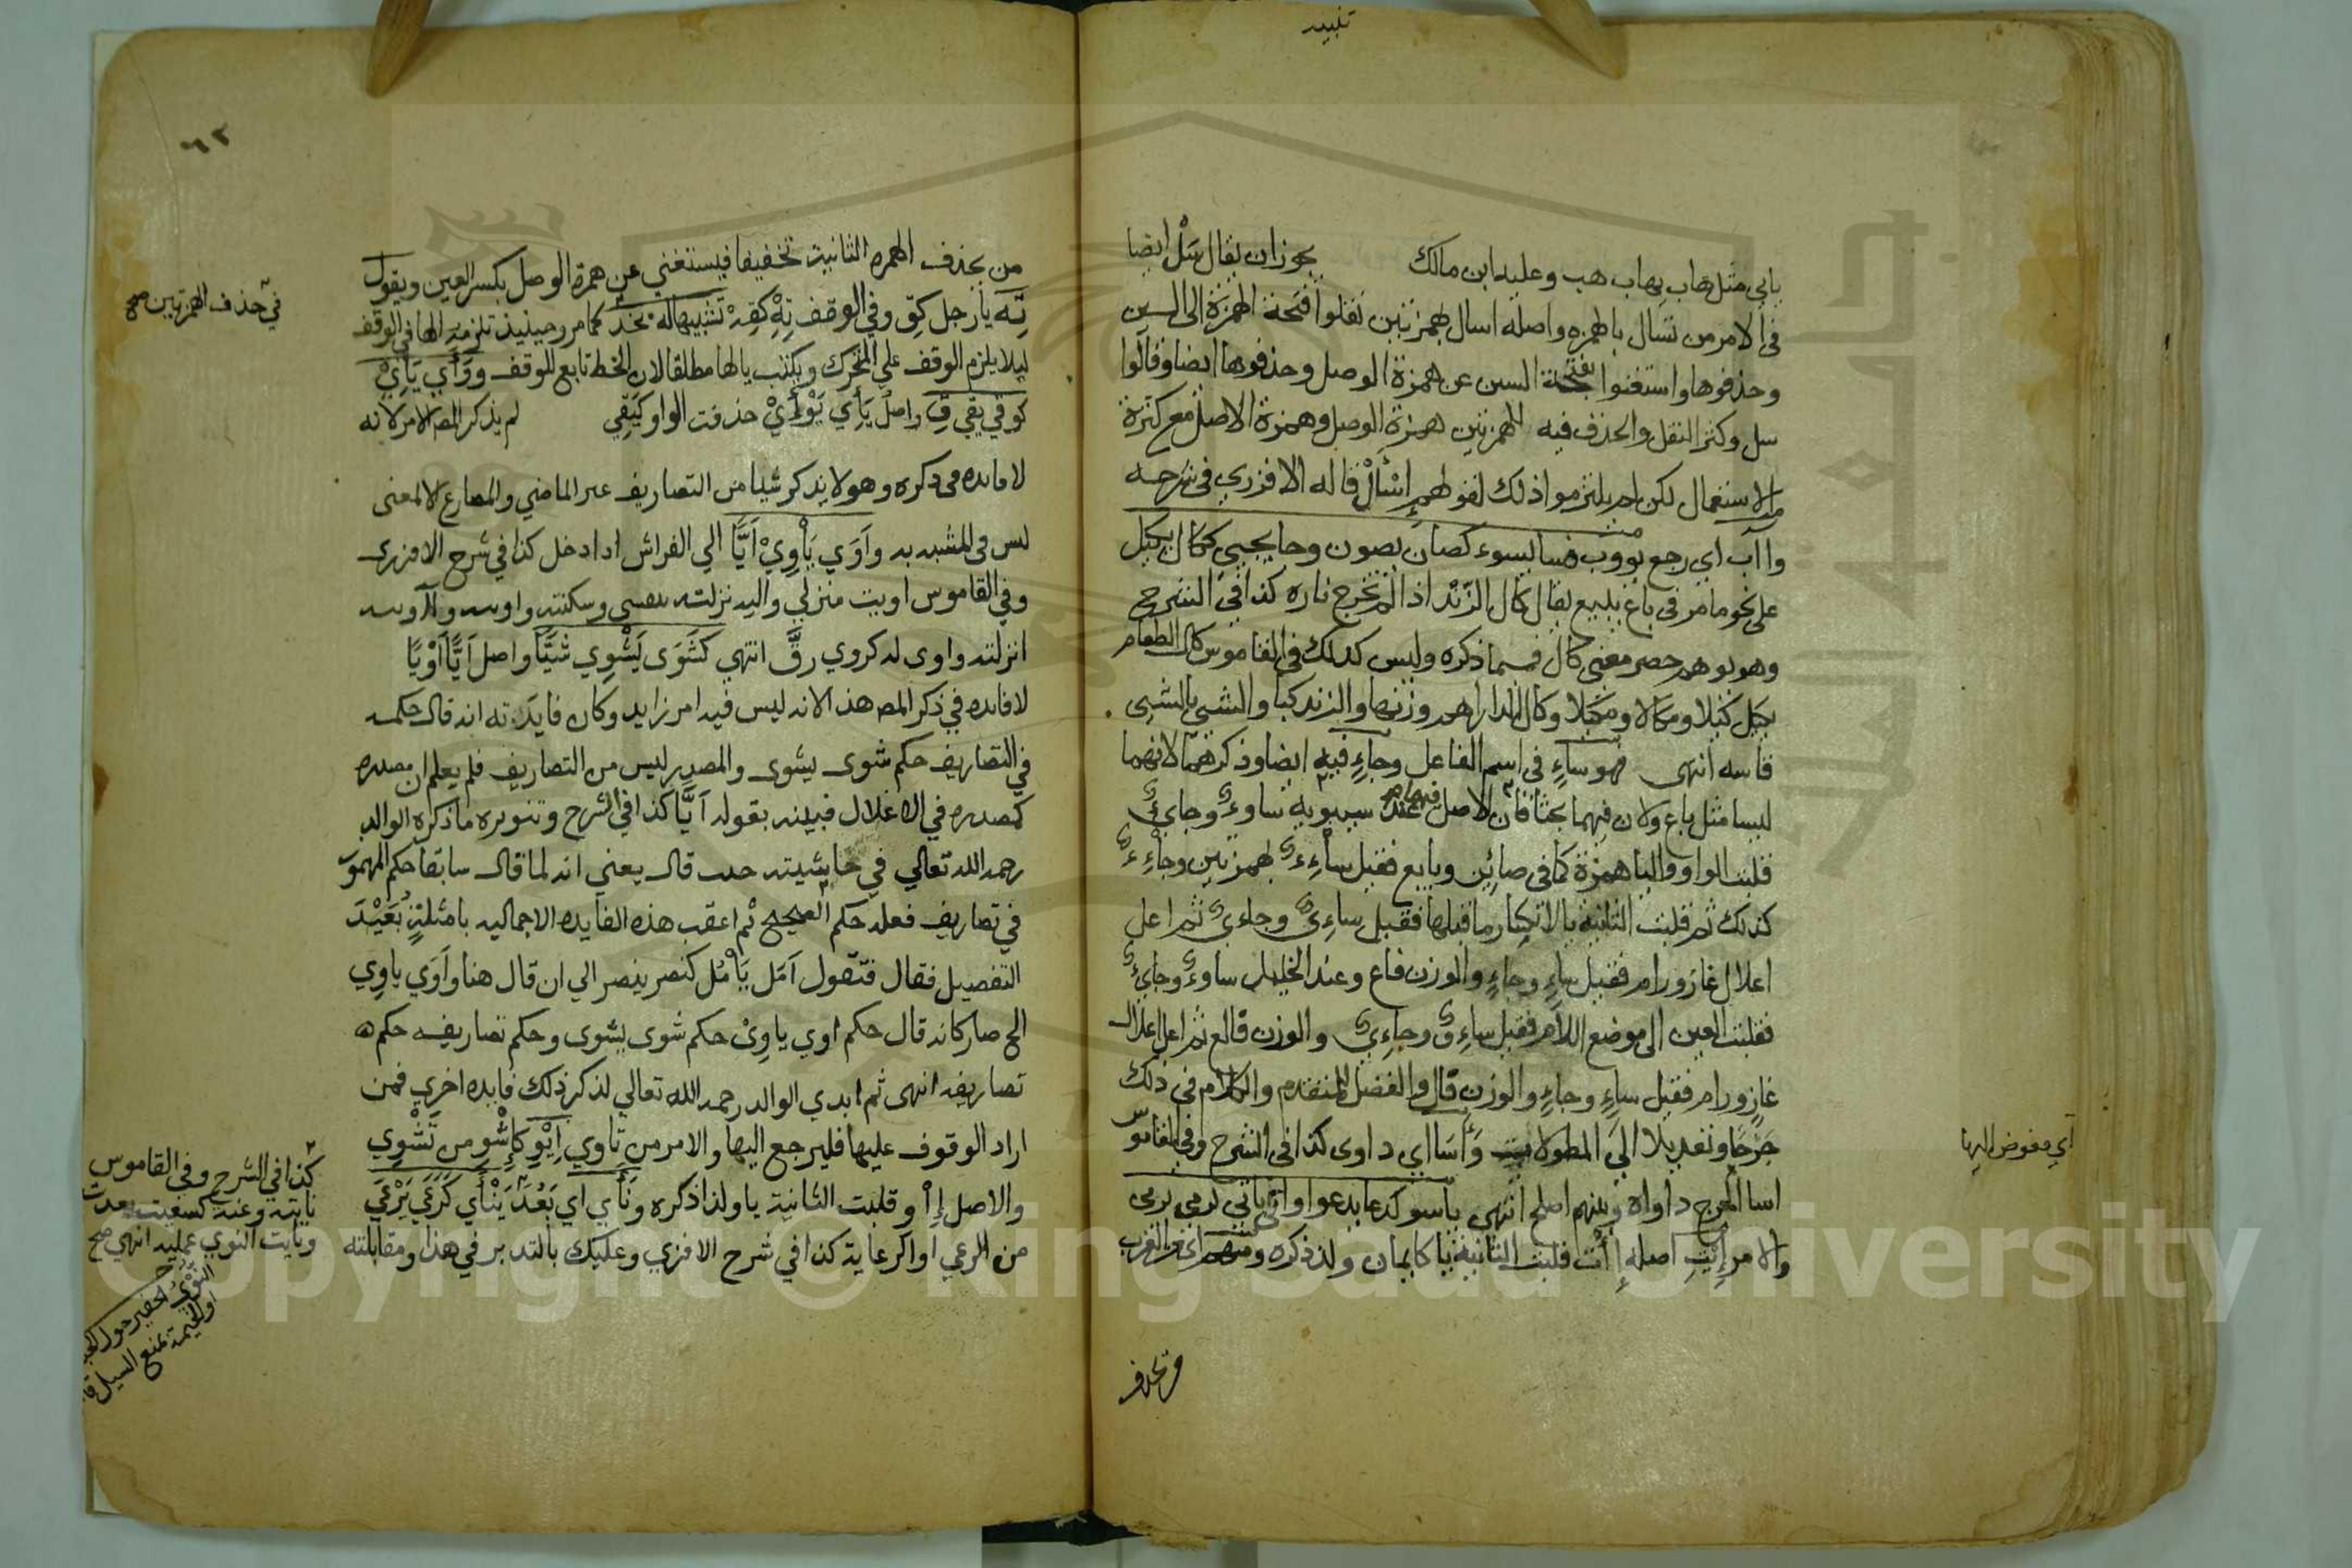 تنبيه
ياتي مثل هاب يهاب هب وعليه ابن مالك يجوز ان يقال سَلْ ايضا
في الامر من تسال بالهمزه واصله اسال بهمزتين نقلوا فتحة الهمزة الى السين
وحذفوها واستغنوا بفتحة السين عن همزة الوصل وحذفوها ايضا وقالوا
سل وكثر النقل والحذف فيه للهمزتين همزة الوصل وهمزة الاصل مع كثرة
الاستعمال لكن لم يلتزموا ذلك لقولهم إسْأَلْ قاله الافزري في شرحه
وآب اي رجع يووب وسا يسوء كصان يصون وجا يجيئ ككال يكيل
على نحو ما مر في باع يبيع يقال كال الزَّنْد اذا لم تخرج ناره كذا في الشرح
وهو يوهم حصر معنى كال فيما ذكره وليس كذلك في القاموس كال الطعام
يكيل كيلا ومكالا ومكيلا وكال الدراهم وزنها والزند كبا والشئ بالشئ
قاسه انتهى فهو ساءٍ في اسم الفاعل وجاءٍ فيه ايضا وذكرهما لانهما
ليسا مثل باع ولان فيهما بحثا فان الاصل فيهما عند سيبويه ساوءٌ وجايئٌ
قلبت الواو والياء همزة كما في صائن وبايع فقيل ساءِءٌ بهمزتين وجاءِءٌ
كذلك ثم قلبت الثانية يا لانكسار ما قبلها فقيل ساءِيٌ وجاءِيٌ ثم اعل
اعلال غاز ورام فقيل ساءٍ وجاءٍ والوزن فاع وعند الخليل ساوءٌ وجايئٌ
فقلبت العين الى موضع اللام فقيل ساءِوٌ وجاءِيٌ والوزن فالع ثم اعل اعلال
غازٍ ورام فقيل ساءٍ وجاءٍ والوزن فالٍ والفضل للمتقدم والكلام في ذلك
جَرْحًا وتعديلا الَىَّ المطولات وَأَسَا اي داوى كذا في الشرح وفي القاموس
اسا الجرح داواه وبينهم اصلح انتهى ياسو كدعا يدعوا واتى ياتي كرمى يرمى
والامر إِيتِ اصله إِأْت قلبت الثانية يا كايمان ولذا ذكره ومنهم اي من العرب
من يحذف
اي مفوض اليها
٦٢
من يحذف الهمزه الثانية تخفيفا فيستغني عن همزة الوصل بكسر العين ويقول
تِ يا رجل كقِ وفي الوقف تِهْ كقِهْ تشبيها له بخذ كما مر وحينيذ تلزمه الها في الوقف
ليلا يلزم الوقف على المتحرك ويكتب بالها مطلقا لان الخط تابع للوقف ووَأَي يَايْ
كوقي يقي قِ واصل يَأي يَوْأَيْ حذفت الواو كيَقِي لم يذكر المص الامر لانه
لا فايده في ذكره وهو لا يذكر شيا من التصاريف غير الماضي والمضارع الا لمعنى
ليس في المشبه به وأَوَي يَأْوِيْ أيًّا الي الفراش اذا دخل كذا في شرح الافزرى
وفي القاموس اويت منزلي واليه نزلته بنفسي وسكنته واويته وآويته
انزلته واوى له كروي رقَّ انتهي كشَوَى يَشْوِي شيًّا واصل ايًّا أَوْيًا
لا فايده في ذكر المص هذا لانه ليس فيه امر زايد وكان فايدته انه قال حكمه
في التصاريف حكم شوى يشوى والمصدر ليس من التصاريف فلم يعلم ان مصدره
كمصدره في الاعلال فبينه بقوله ايًّا كذا في الشرح وتنويره ما ذكره الوالد
رحمه الله تعالي في حاشيته حيث قال يعني انه لما قال سابقا حكم المهموز
في تصاريف فعله حكم الصحيح ثم اعقب هذه الفايده الاجماليه بامثلةٍ بُعَيْدَ
التفصيل فقال فتقول أمَل يَأْمُل كنصر ينصر الي ان قال هنا وأوَي ياوِي
الخ صار كانه قال حكم اوي ياوِىْ حكم شوى يشوى وحكم تصاريفه حكم
تصاريفه انتهى ثم ابدي الوالد رحمه الله تعالي لذكر ذلك فايده اخرى فمن
اراد الوقوف عليها فليرجع اليها والامر من تاوي إِيْوِ كإِشْوِ من تَشْوِي
والاصل إِأْوِ قلبت الثانية يا ولذا ذكره ونَأَي اي بَعُدَ يَنْأَي كَرَعَي يَرْعَي
من الرعي او الرعاية كذا في شرح الافزري وعليك بالتدبر في هذا ومقابلته
في حذف الهمزتين صح
كذا في الشرح وفي القاموس
نايته وعنه كسعيت بعدت
ونايت النوي عملته انتهي صح
النؤي الحفير حول الخبا
او الخيمة تمنع السيل